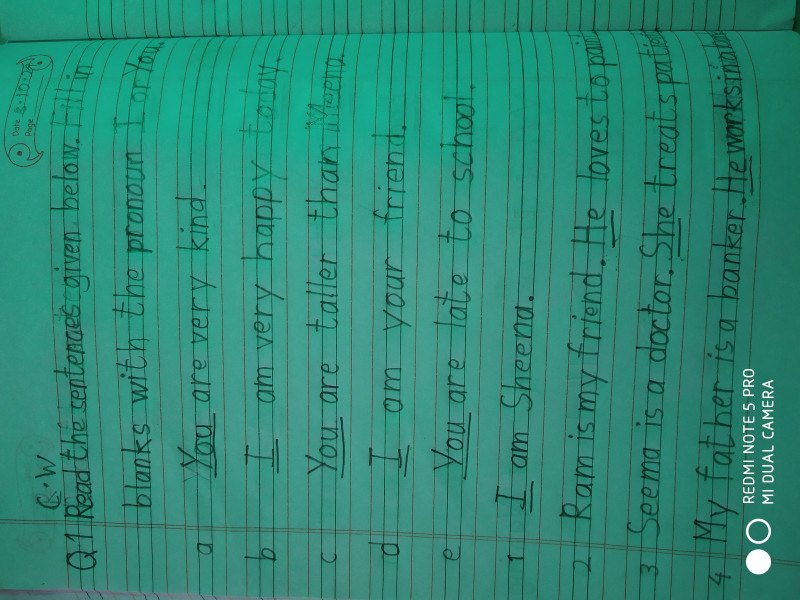 Date 8.10.21
Page
C.W
Q1 Read the sentences given below. Fill in
blanks with the pronoun I or You.
a You are very kind.
b I am very happy today.
c You are taller than Meena.
d I am your friend.
e You are late to school.
1 I am Sheena.
2 Ram is my friend. He loves to paint
3 Seema is a doctor. She treats patients
4 My father is a banker. He works in a
REDMI NOTE 5 PRO
MI DUAL CAMERA